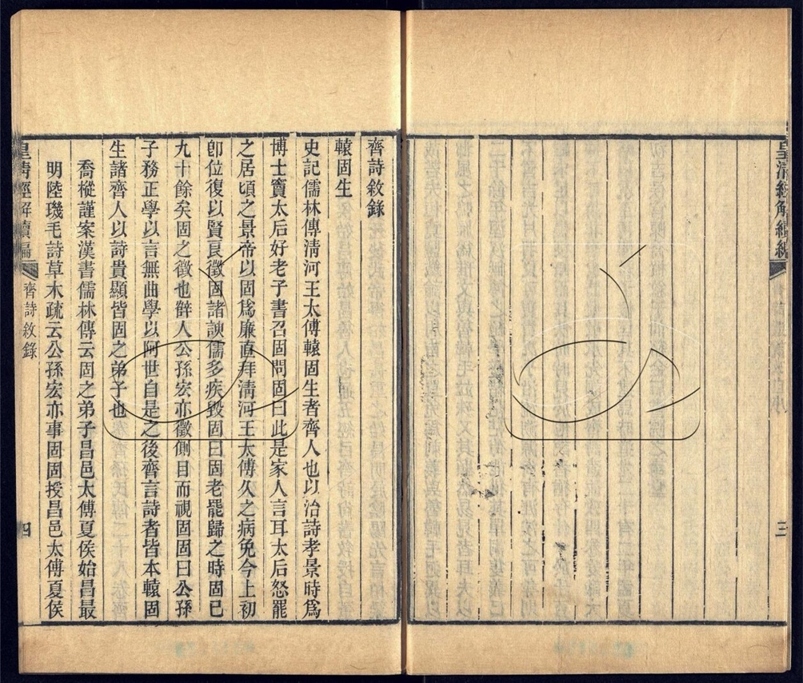 皇清經解續編
三
齊詩敘錄
轅固生
史記儒林傳清河王太傅轅固生者齊人也以治詩孝景時爲
博士竇太后好老子書召固問固曰此是家人言耳太后怒罷
之居頃之景帝以固爲廉直拜清河王太傅久之病免今上初
卽位復以賢良徵固諸諛儒多疾毀固曰固老罷歸之時固已
九十餘矣固之徵也薛人公孫宏亦徵側目而視固固曰公孫
子務正學以言無曲學以阿世自是之後齊言詩者皆本轅固
生諸齊人以詩貴顯皆固之弟子也
喬樅謹案漢書儒林傳云固之弟子昌邑太傅夏侯始昌最
明陸璣毛詩草木疏云公孫宏亦事固固授昌邑太傅夏侯
皇清經解續編
齊詩敘錄
四